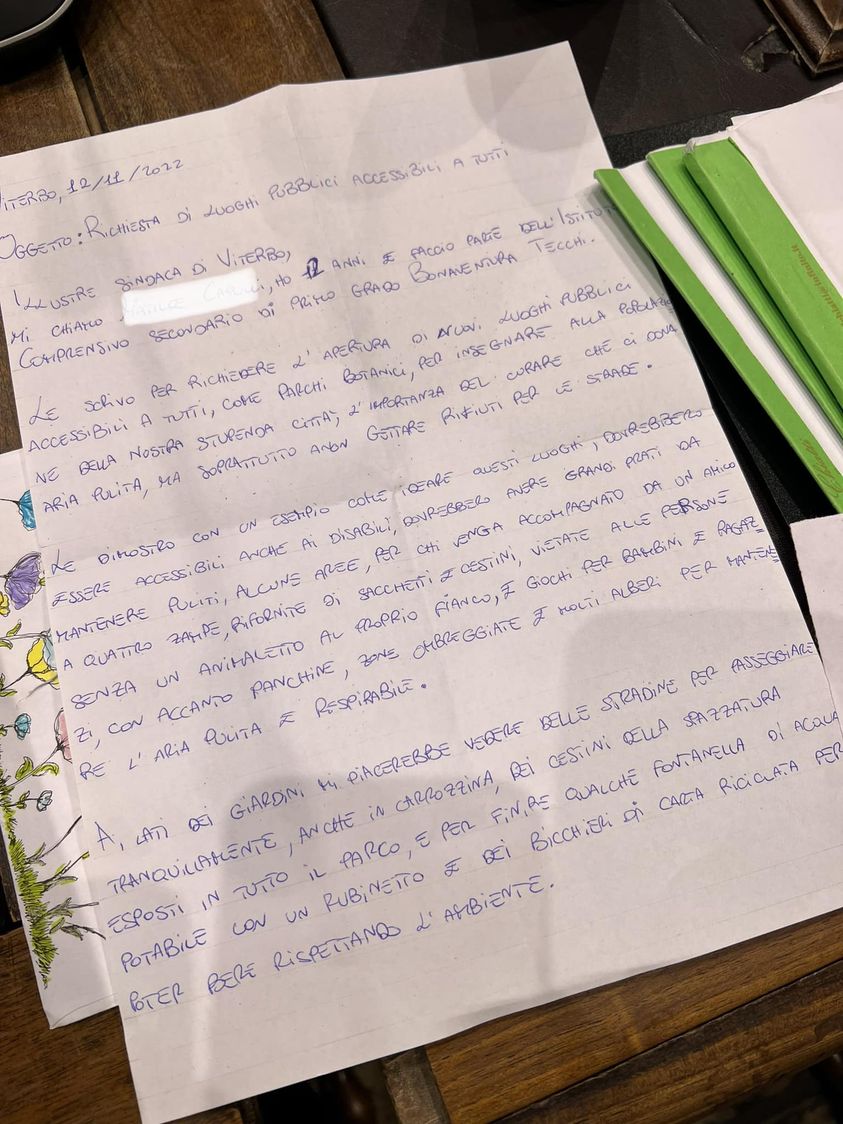 VITERBO, 12/11/2022
OGGETTO: RICHIESTA DI LUOGHI PUBBLICI ACCESSIBILI A TUTTI
ILLUSTRE SINDACA DI VITERBO,
MI CHIAMO , HO 12 ANNI E FACCIO PARTE DELL'ISTITUTO
COMPRENSIVO SECONDARIO DI PRIMO GRADO BONAVENTURA TECCHI.
LE SCRIVO PER RICHIEDERE L'APERTURA DI NUOVI LUOGHI PUBBLICI
ACCESSIBILI A TUTTI, COME PARCHI BOTANICI, PER INSEGNARE ALLA POPOLAZIO
NE DELLA NOSTRA STUPENDA CITTÀ, L'IMPORTANZA DEL CURARE CHE CI DONA
ARIA PULITA, MA SOPRATTUTTO A NON GETTARE RIFIUTI PER LE STRADE.
LE DIMOSTRO CON UN ESEMPIO COME IDEARE QUESTI LUOGHI, DOVREBBERO
ESSERE ACCESSIBILI ANCHE AI DISABILI, DOVREBBERO AVERE GRANDI PRATI DA
MANTENERE PULITI, ALCUNE AREE, PER CHI VENGA ACCOMPAGNATO DA UN AMICO
A QUATTRO ZAMPE, RIFORNITE DI SACCHETTI E CESTINI, VIETATE ALLE PERSONE
SENZA UN ANIMALETTO AL PROPRIO FIANCO, E GIOCHI PER BAMBINI E RAGAZ-
ZI, CON ACCANTO PANCHINE, ZONE OMBREGGIATE E MOLTI ALBERI PER MANTENE
RE L'ARIA PULITA E RESPIRABILE.
AI LATI DEI GIARDINI MI PIACEREBBE VEDERE DELLE STRADINE PER PASSEGGIARE
TRANQUILLAMENTE, ANCHE IN CARROZZINA, DEI CESTINI DELLA SPAZZATURA
ESPOSTI IN TUTTO IL PARCO, E PER FINIRE QUALCHE FONTANELLA DI ACQUA
POTABILE CON UN RUBINETTO E DEI BICCHIERI DI CARTA RICICLATA PER
POTER BERE RISPETTANDO L'AMBIENTE.